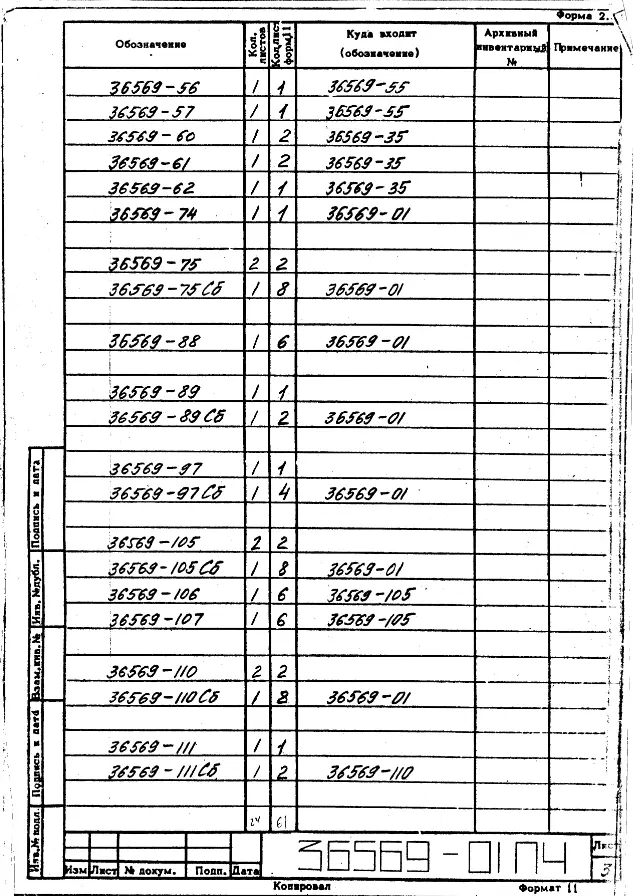 Форма 2.
Обозначение Кол. листов Кол. лист. форм. 11 Куда входит (обозначение) Архивный инвентарный № Примечание
36569-56 1 1 36569-55
36569-57 1 1 36569-55
36569-60 1 2 36569-35
36569-61 1 2 36569-35
36569-62 1 1 36569-35
36569-74 1 1 36569-01
36569-75 2 2
36569-75Сб 1 8 36569-01
36569-88 1 6 36569-01
36569-89 1 1
36569-89Сб 1 2 36569-01
36569-97 1 1
36569-97Сб 1 4 36569-01
36569-105 2 2
36569-105Сб 1 8 36569-01
36569-106 1 6 36569-105
36569-107 1 6 36569-105
36569-110 2 2
36569-110Сб 1 8 36569-01
36569-111 1 1
36569-111Сб 1 2 36569-110
24 61
Подпись и дата
Инв. №дубл.
Взам.инв. №
Подпись и дата
Инв.№ подл.
36569-01П4
Лист
3
Изм Лист № докум. Подп. Дата
Копировал Формат 11